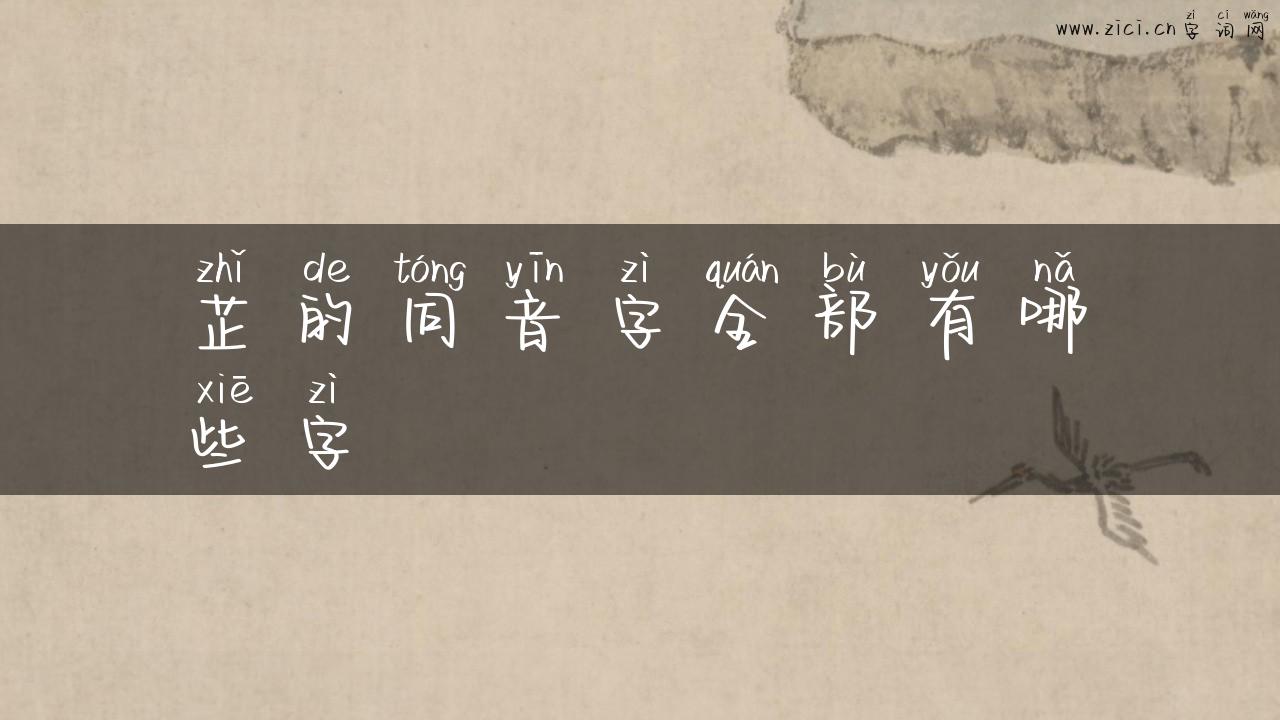 zì cí wǎng
www.zici.cn 字词网
zhǐ de tóng yīn zì quán bù yǒu nǎ
芷的同音字全部有哪
xiē zì
些字